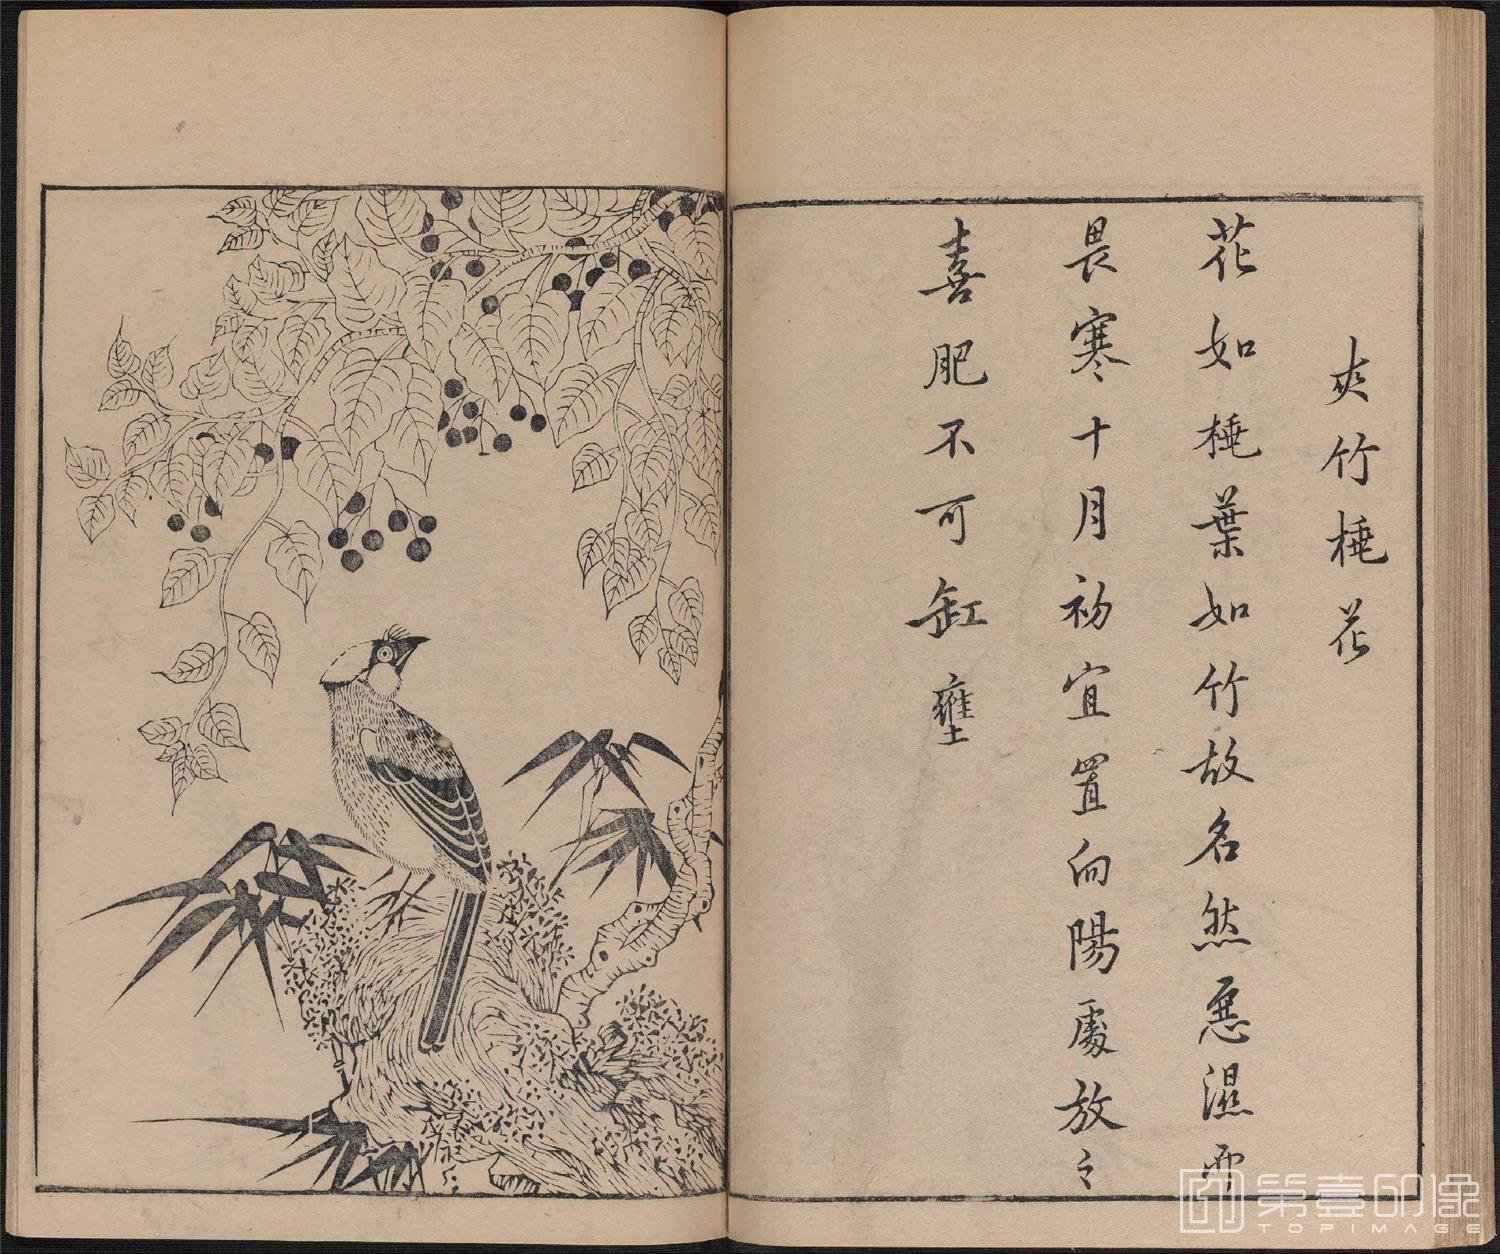 夾竹桃花
花如桃葉如竹故名然惡濕而
畏寒十月初宜置向陽處放之
喜肥不可缸壅
第壹印像
TOPIMAGE